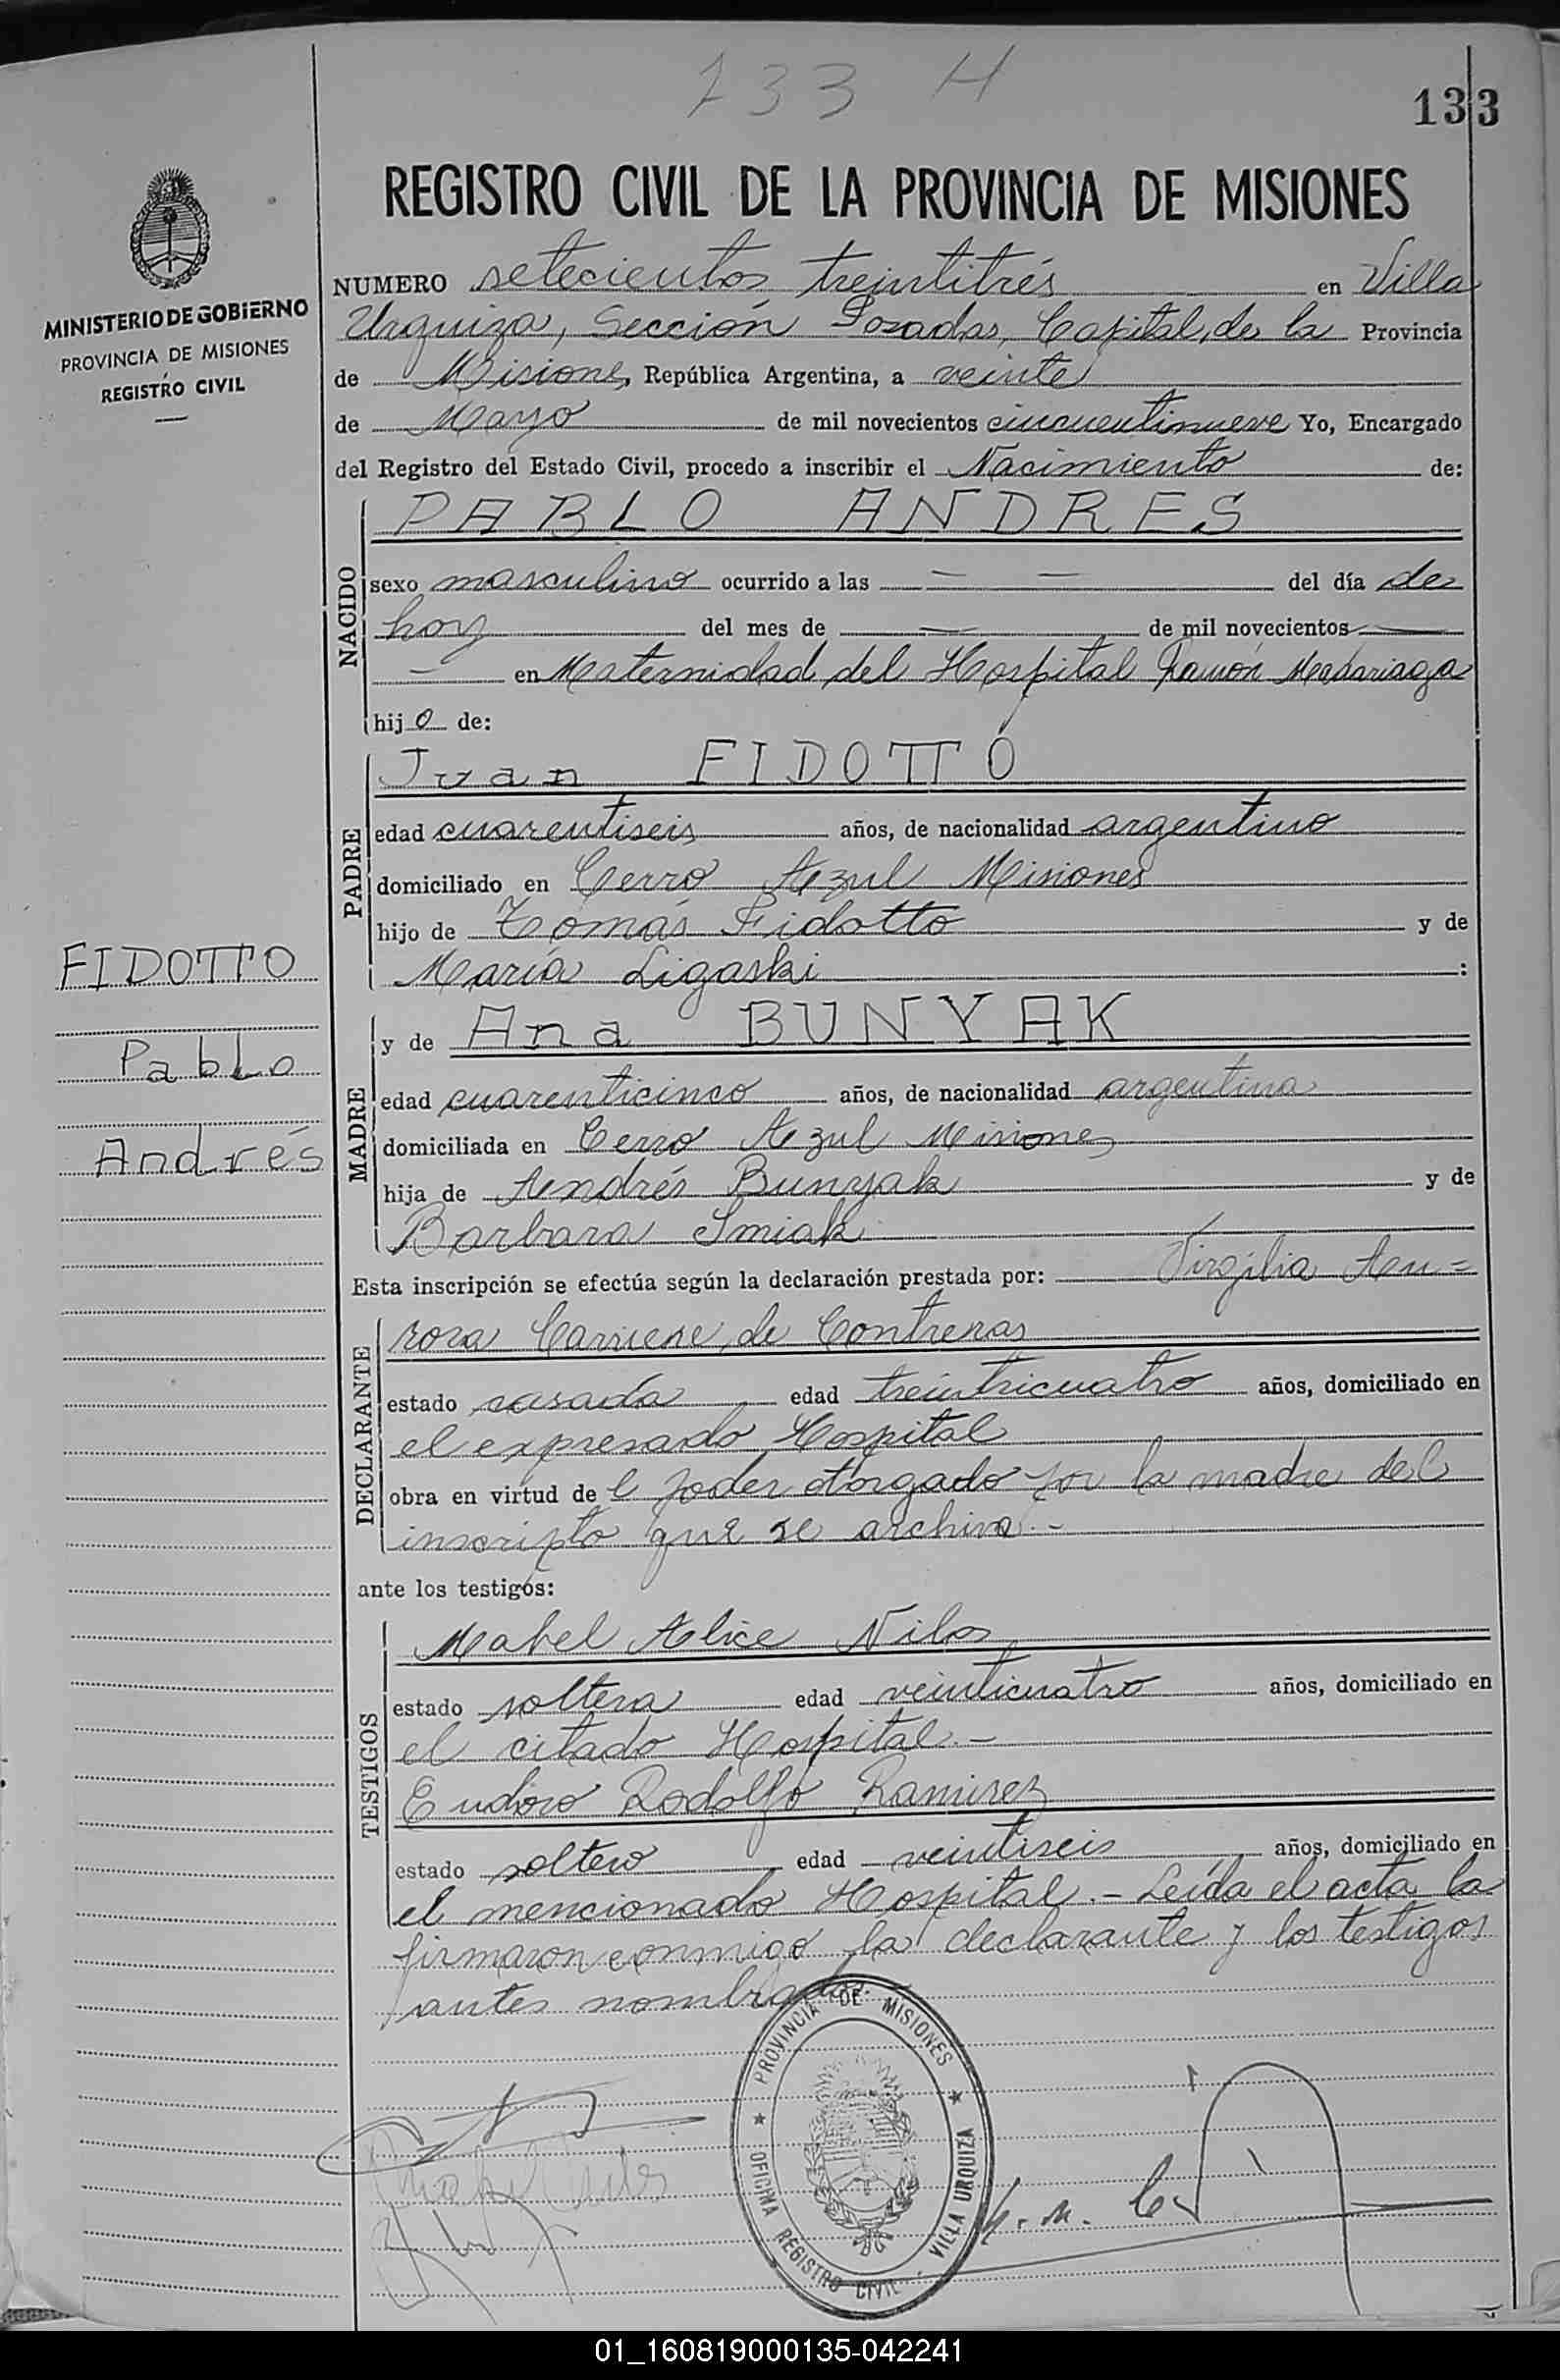 733 H
133
MINISTERIO DE GOBIERNO
PROVINCIA DE MISIONES
REGISTRO CIVIL
FIDOTTO
Pablo
Andrés
REGISTRO CIVIL DE LA PROVINCIA DE MISIONES
NUMERO setecientos treintitrés en Villa
Urquiza, Sección Posadas, Capital de la Provincia
de Misiones, República Argentina, a veinte
de Mayo de mil novecientos cincuentinueve Yo, Encargado
del Registro del Estado Civil, procedo a inscribir el Nacimiento de:
NACIDO
PABLO ANDRES
sexo masculino ocurrido a las — — del día de
hoy del mes de — de mil novecientos —
— en Maternidad del Hospital Ramón Madariaga
hijo de:
PADRE
Juan FIDOTTO
edad cuarentiseis años, de nacionalidad argentino
domiciliado en Cerro Azul Misiones
hijo de Tomás Fidotto y de
María Ligaski :
MADRE
y de Ana BUNYAK
edad cuarenticinco años, de nacionalidad argentina
domiciliada en Cerro Azul Misiones
hija de Andrés Bunyak y de
Barbara Smiak
Esta inscripción se efectúa según la declaración prestada por: Virgilia Au=
DECLARANTE
rora Carriere de Contreras
estado casada edad treinticuatro años, domiciliado en
el expresado Hospital
obra en virtud de l poder otorgado por la madre del
inscripto que se archiva.-
ante los testigos:
TESTIGOS
Mabel Alice Nilos
estado soltera edad veinticuatro años, domiciliado en
el citado Hospital.-
Eudoro Rodolfo Ramirez
estado soltero edad veintiseis años, domiciliado en
el mencionado Hospital.- Leída el acta la
firmaron conmigo la declarante y los testigos
antes nombrados.
PROVINCIA DE MISIONES
OFICINA REGISTRO CIVIL VILLA URQUIZA
01_160819000135-042241